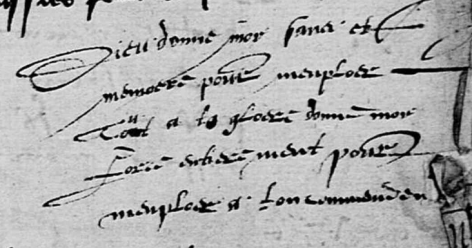 Dieu donne moy sauer et
memoere pour meuploer
Tout a ta gloere donne moy
Force entierement pour
meuploer a ton commenden